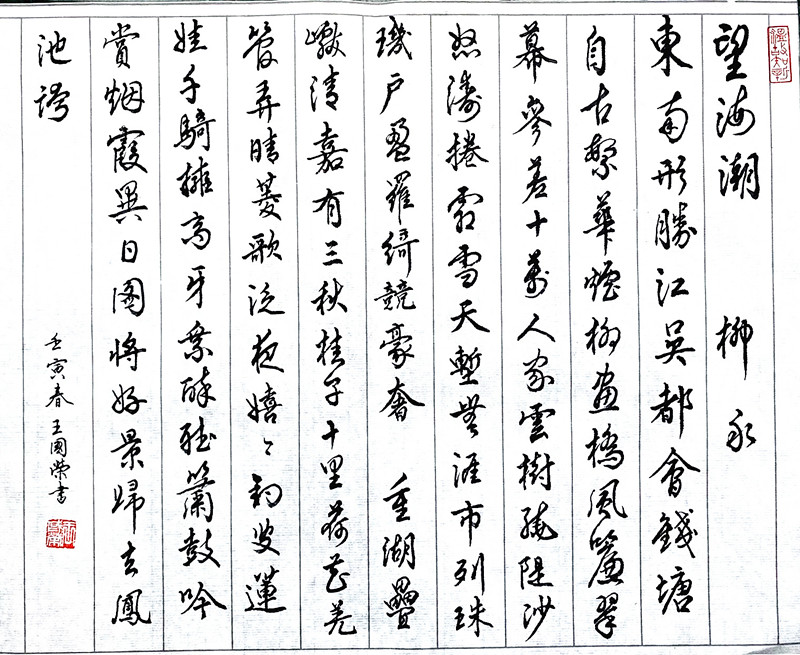 溫故知新
望海潮 柳永
東南形勝江吳都會錢塘
自古繁華煙柳畫橋風簾翠
幕參差十萬人家雲樹繞隄沙
怒濤捲霜雪天塹無涯市列珠
璣戶盈羅綺競豪奢 重湖疊
巘清嘉有三秋桂子十里荷花羌
管弄晴菱歌泛夜嬉〻釣叟蓮
娃千騎擁高牙乘醉聽簫鼓吟
賞烟霞異日圖將好景歸去鳳
池誇
壬寅春王國榮書